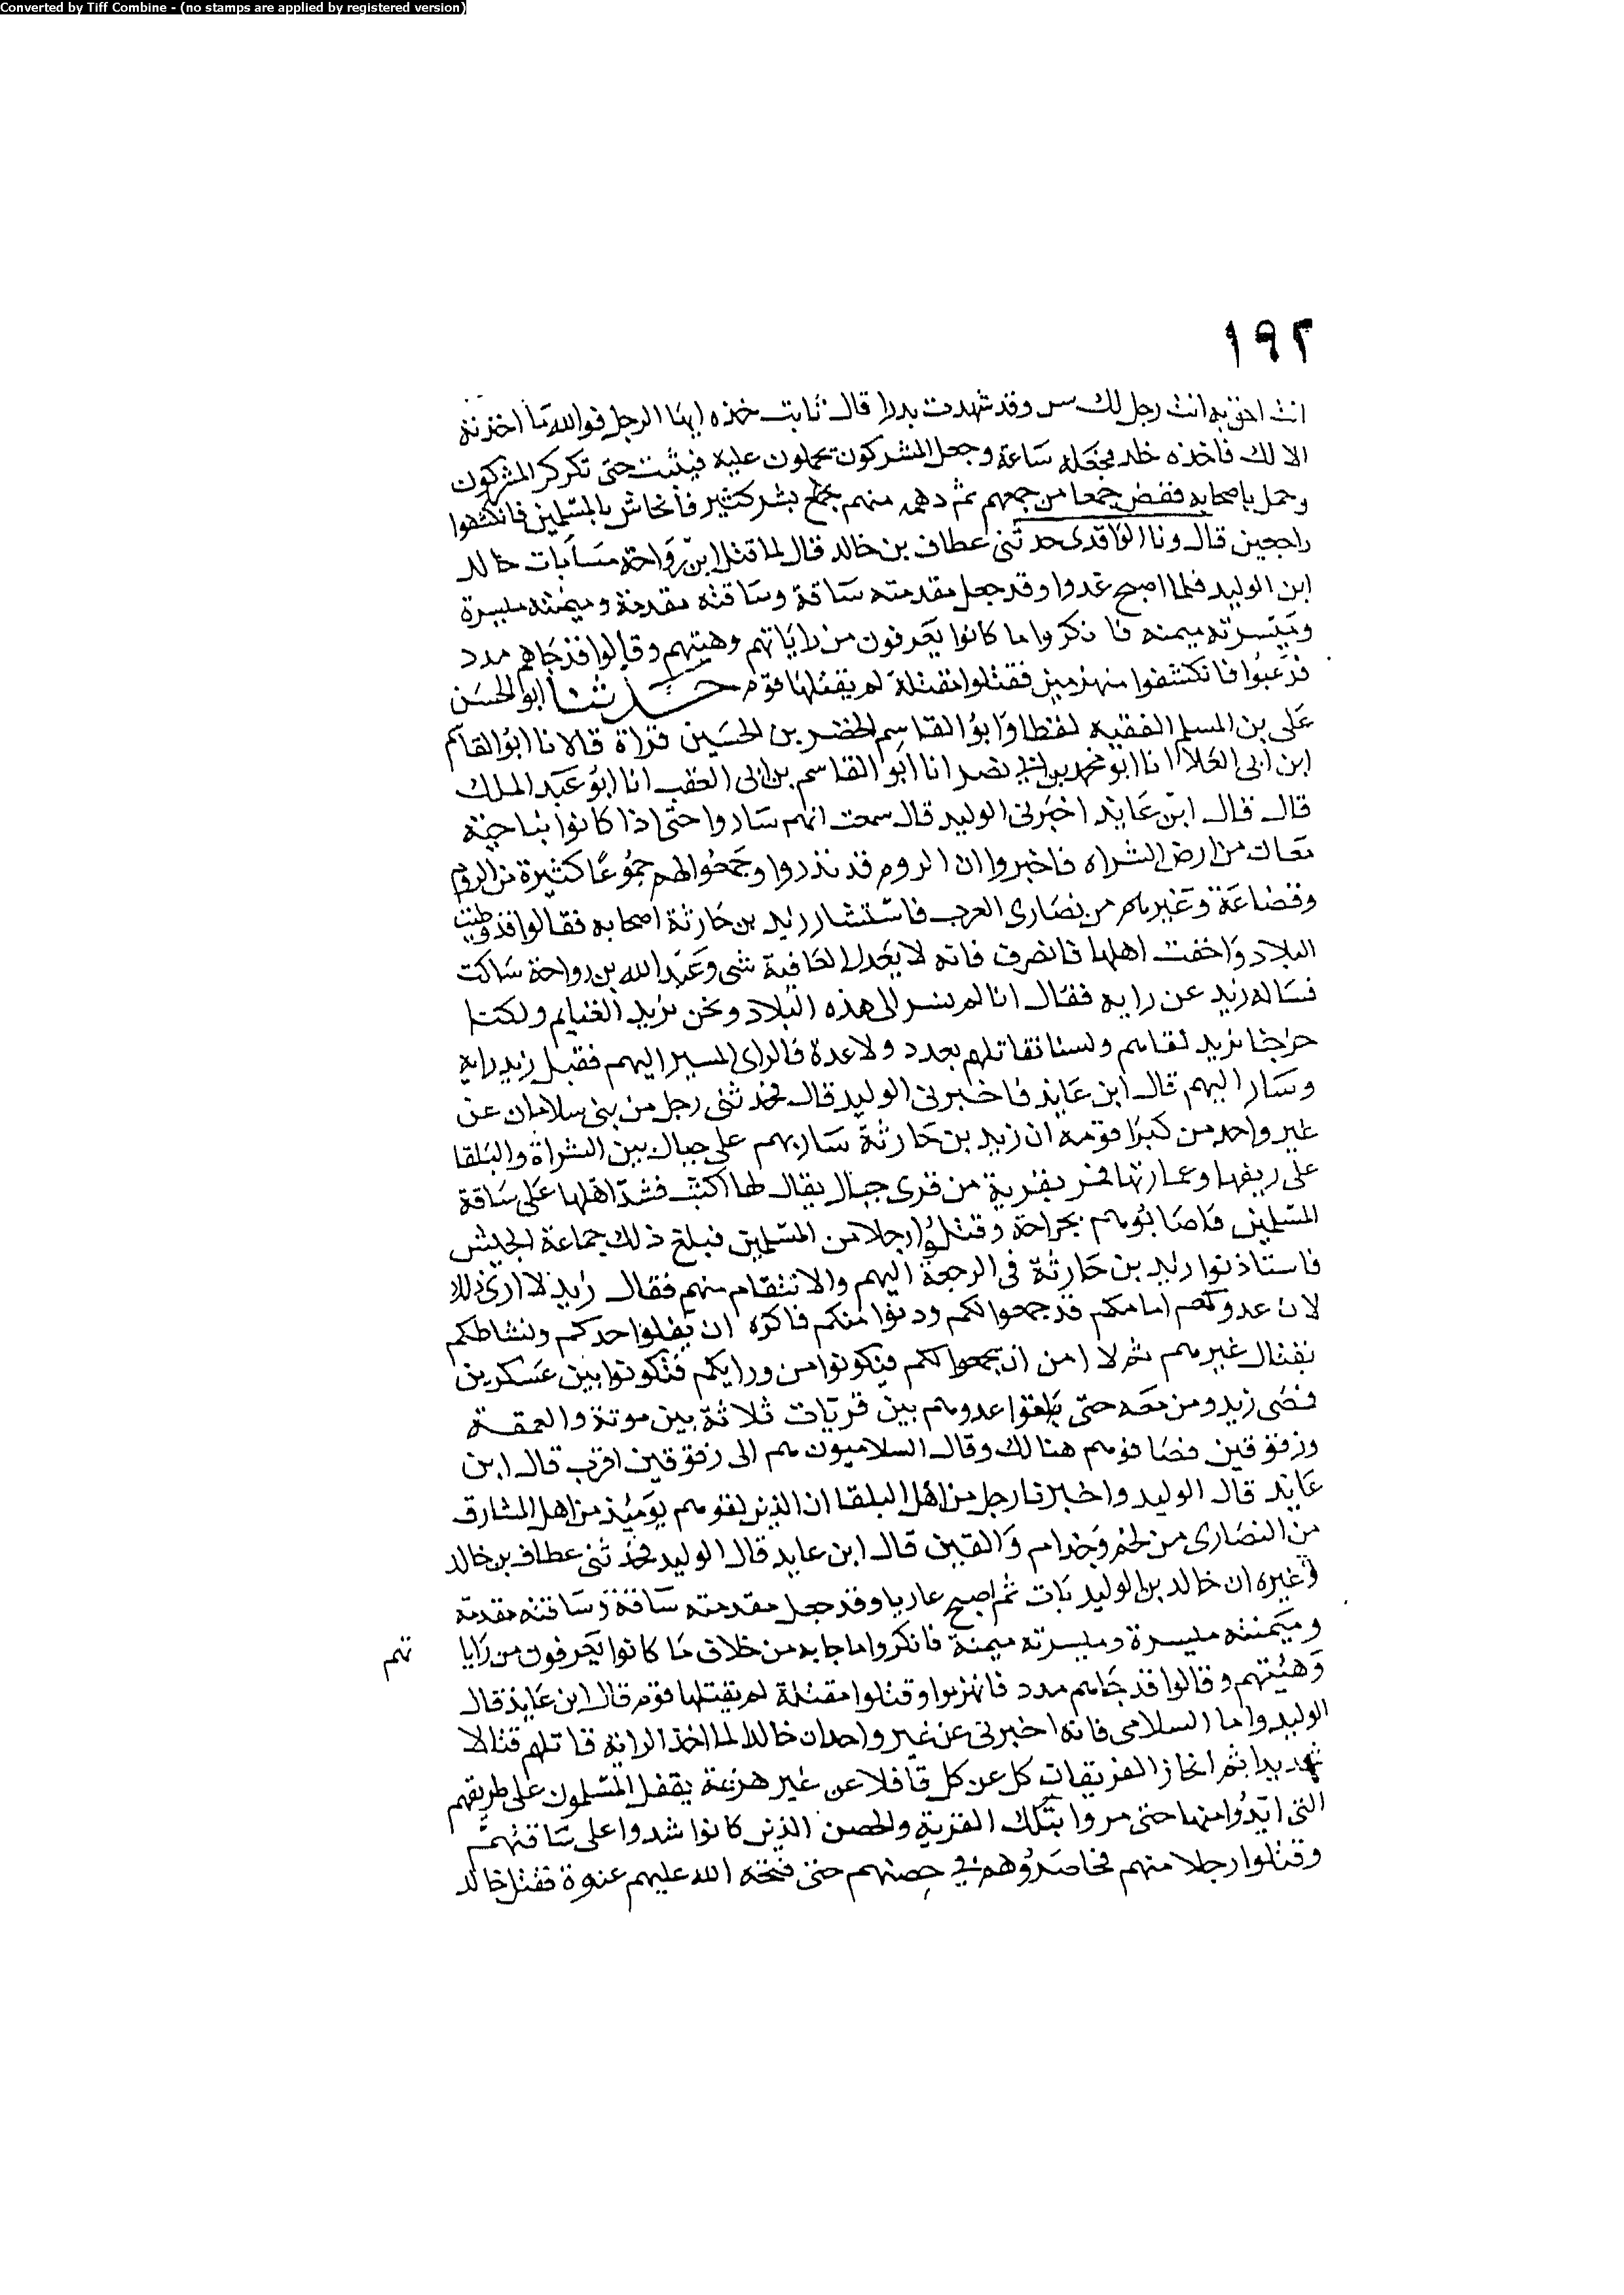 Converted by Tiff Combine - (no stamps are applied by registered version)
١٩٢
انت احق به انت رجل لك سن وقد شهدت بدرا قال ثابت خذه ايها الرجل فوالله ما اخذته
الا لك فاخذه خلد فحمله ساعة وجعل المشركون يحملون عليه فيثبت حتى تكركر المشركون
وحمل باصحابه ففض جمعا من جمعهم ثم دهمه منهم بشر كثير فانحاش بالمسلمين فانكشفوا
راجعين قال ونا الواقدى حدثنى عطاف بن خالد قال لما قتل ابن رواحة مسا بات خالد
ابن الوليد فلما اصبح غدوا وقد جعل مقدمته ساقة وساقته مقدمة وميمنته ميسرة
وميسرته ميمنة فانكروا ما كانوا يعرفون من راياتهم وهيتهم وقالوا قد جاهم مدد
فرعبوا فانكشفوا منهزمين فقتلوا مقتلة لم يقتلها قوم حدثنا ابو الحسن
على بن المسلم الفقيه لفظا وابو القاسم الخضر بن الحسين قراة قالا نا ابو القاسم
ابن ابى العلا انا ابو محمد بن ابى نصر انا ابو القاسم بن ابى العقب انا ابو عبد الملك
قال قال ابن عايذ اخبرنى الوليد قال سمعت انهم ساروا حتى اذا كانوا بناحية
معان من ارض الشراه فاخبروا ان الروم قد نذروا وجمعوا لهم جموعا كثيرة من الروم
وقضاعة وغيرهم من نصارى العرب فاستشار زيد بن حارثة اصحابه فقالوا قد وطيت
البلاد واخفت اهلها فانصرف فانه لا يعدل العافية شى وعبد الله بن رواحة ساكت
فساله زيد عن رايه فقال انا لم نسر الى هذه البلاد ونحن نريد الغنايم ولكنا
خرجنا نريد لقاهم ولسنا نقاتلهم بعدد ولا عدة فالراى المسير اليهم فقبل زيد رايه
وسار اليهم قال ابن عايذ فاخبرنى الوليد قال فحدثنى رجل من بنى سلامان عن
غير واحد من كبرا قومه ان زيد بن حارثة سار بهم على جبال بين الشراة والبلقا
على ريفها وعمارتها فمر بقرية من قرى جبال يقال لها اكثب فشد اهلها على ساقة
المسلمين فاصابوهم بجراحة وقتلوا رجلا من المسلمين فبلغ ذلك جماعة الجيش
فاستاذنوا زيد بن حارثة فى الرجعة اليهم والانتقام منهم فقال زيد لا ارى ذلك
لان عدوكم امامكم قد جمعوا لكم ودنوا منكم فاكره ان يفلوا حدكم ونشاطكم
بقتال غيرهم ثم لا امن ان يجمعوا لكم فيكونوا من ورايكم فتكونوا بين عسكرين
فمضى زيد ومن معه حتى لقوا عدوهم بين قريات ثلاثة بين موتة والعمقة
وزقوقين فصافوهم هنالك وقال السلاميون هم الى زقوقين اقرب قال ابن
عايذ قال الوليد واخبرنا رجل من اهل البلقا ان الذين لقوهم يوميذ من اهل المشارف
من النصارى من لخم وجذام والقين قال ابن عايد قال الوليد فحدثنى عطاف بن خالد
وغيره ان خالد بن الوليد بات ثم اصبح غاديا وقد جعل مقدمته ساقة وساقته مقدمة
وميمنته ميسرة وميسرته ميمنة فانكروا ما جا به من خلاف ما كانوا يعرفون من رايا تهم
وهيئتهم وقالوا قد جاهم مدد فانهزموا وقتلوا مقتلة لم يقتلها قوم قال ابن عايذ قال
الوليد واما السلامى فانه اخبرنى عن غير واحد ان خالدا لما اخذ الراية قاتلهم قتالا
شديدا ثم انحاز الفريقان كل عن كل قافلا عن غير هزيمة يقفل المسلمون على طريقهم
التى ابدوا منها حتى مروا بتلك القرية والحصن الذين كانوا شدوا على ساقتهم
وقتلوا رجلا منهم فحاصروهم فى حصنهم حتى فتحه الله عليهم عنوة فقتل خالد